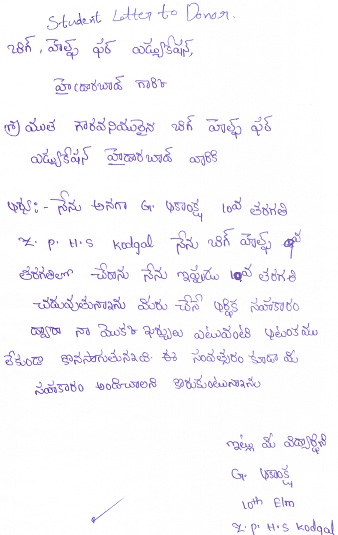 Student Letter to Donor.
బిగ్, హెల్ప్ ఫర్ ఎడ్యుకేషన్,
హైదారబాద్ గారికి
గౌ) యుత గౌరవనియులైన బిగ్ హెల్ప్ ఫర్
ఎడ్యుకేషన్ హైదారబాద్ వారికి
నేను అనగా G. అకాంక్ష 10వ తరగతి
Z. P. H. S Kodgal నేను బిగ్ హెల్ప్ 9వ
తరగతిలో చేరాను నేను ఇప్పుడు 10వ తరగతి
చదువుతున్నాను మీరు చేసే ఆర్థిక సహాకారం
ద్వారా నా యొక్క ఖర్చులు ఎటువంటి ఆటంకము
లేకుండా కొనసాగుతున్నది. ఈ సంవత్సరం కూడా మీ
సహాకారం అందించాలని కోరుకుంటున్నాను
ఇట్లు మీ విద్యార్థిని
G. అకాంక్ష
10th E/m
Z. P. H. S Kodgal